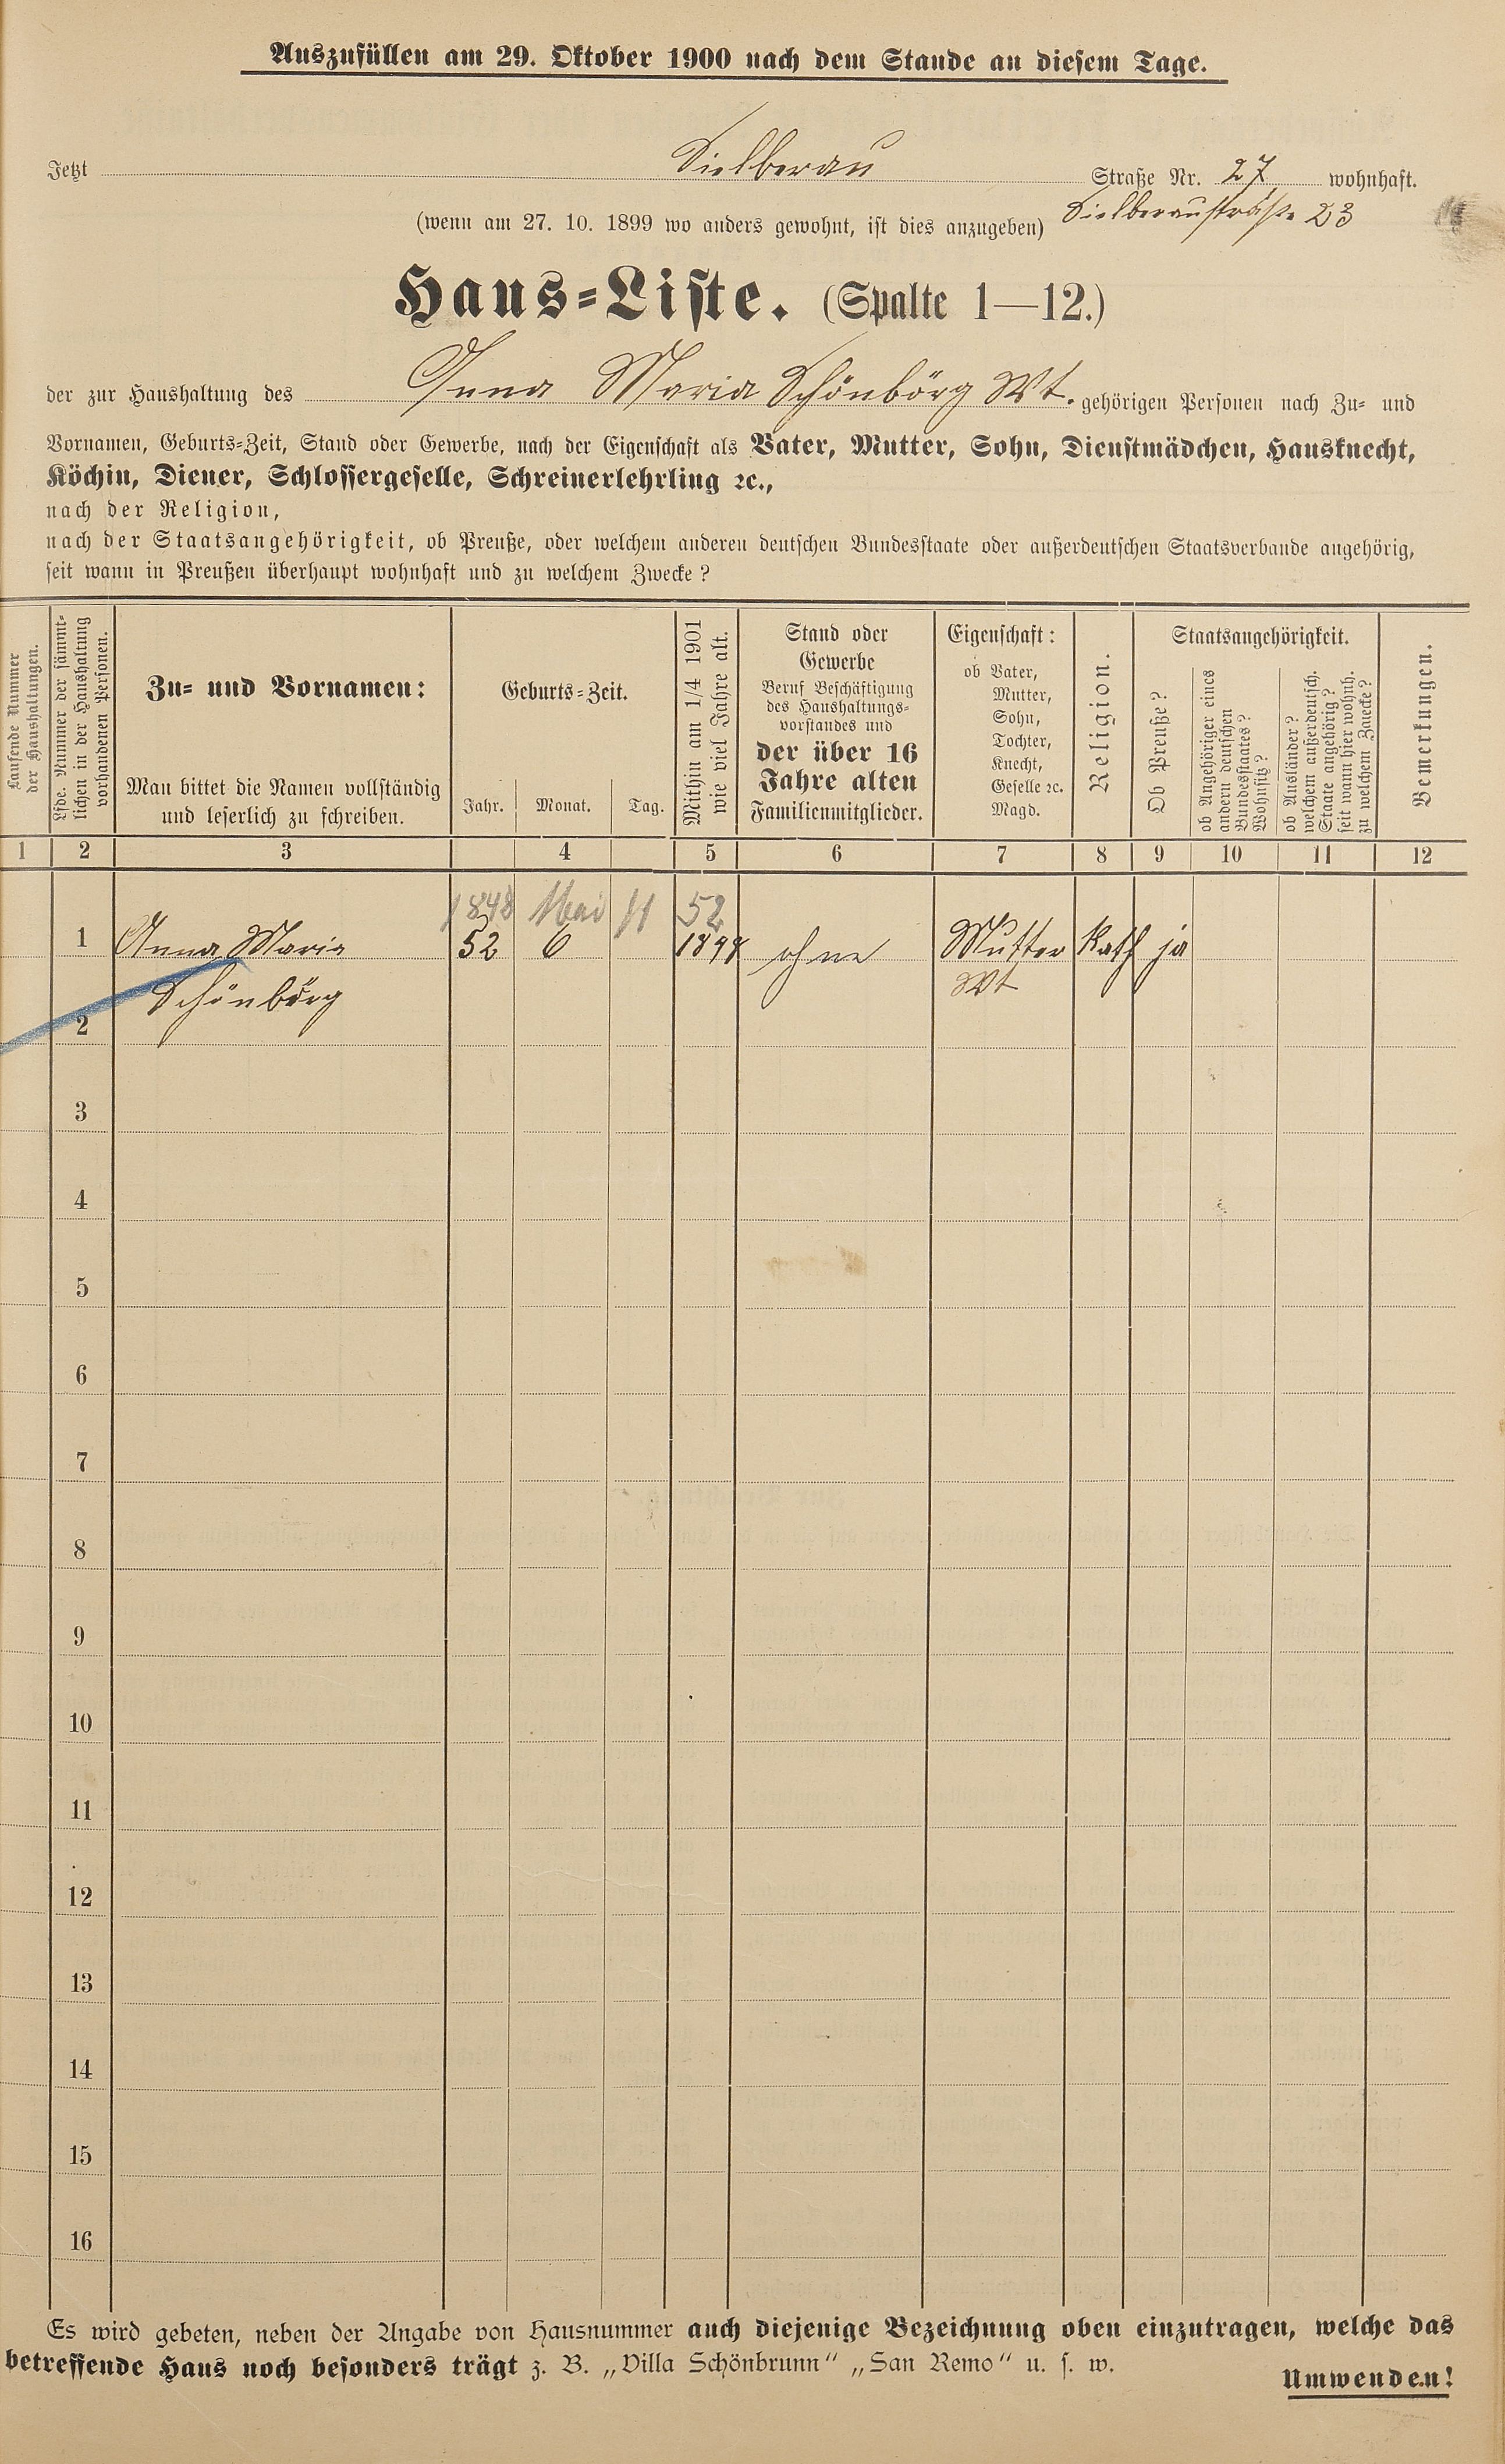 Auszufüllen am 29. Oktober 1900 nach dem Stande an diesem Tage.
Jetzt Sielberau Straße Nr. 27 wohnhaft.
(wenn am 27. 10. 1899 wo anders gewohnt, ist dies anzugeben) Sielberaustraße 23
Haus-Liste. (Spalte 1—12.)
der zur Haushaltung des Anna Maria Schönbörg Wt. gehörigen Personen nach Zu- und
Vornamen, Geburts-Zeit, Stand oder Gewerbe, nach der Eigenschaft als Vater, Mutter, Sohn, Dienstmädchen, Hausknecht,
Köchin, Diener, Schlossergeselle, Schreinerlehrling ꝛc.,
nach der Religion,
nach der Staatsangehörigkeit, ob Preuße, oder welchem anderen deutschen Bundesstaate oder außerdeutschen Staatsverbande angehörig,
seit wann in Preußen überhaupt wohnhaft und zu welchem Zwecke?
Laufende Nummer
der Haushaltungen.
Lfde. Nummer der sämmt-
lichen in der Haushaltung
vorhandenen Personen.
Zu- und Vornamen:
Man bittet die Namen vollständig
und leserlich zu schreiben.
Geburts-Zeit.
Jahr. Monat. Tag.
Mithin am 1/4 1901
wie viel Jahre alt.
Stand oder
Gewerbe
Beruf Beschäftigung
des Haushaltungs-
vorstandes und
der über 16
Jahre alten
Familienmitglieder.
Eigenschaft:
ob Vater,
Mutter,
Sohn,
Tochter,
Knecht,
Geselle ꝛc.
Magd.
Religion.
Staatsangehörigkeit.
Ob Preuße?
ob Angehöriger eines
andern deutschen
Bundesstaates?
Wohnsitz?
ob Ausländer?
welchem außerdeutsch.
Staate angehörig?
seit wann hier wohnh.
zu welchem Zwecke?
Bemerkungen.
1 2 3 4 5 6 7 8 9 10 11 12
1848 Mai 11 52
1 Anna Maria 52 6 1898 ohne Mutter Kath ja
Schönbörg Wt
2
3
4
5
6
7
8
9
10
11
12
13
14
15
16
Es wird gebeten, neben der Angabe von Hausnummer auch diejenige Bezeichnung oben einzutragen, welche das
betreffende Haus noch besonders trägt z. B. „Villa Schönbrunn“ „San Remo“ u. s. w.
Umwenden!